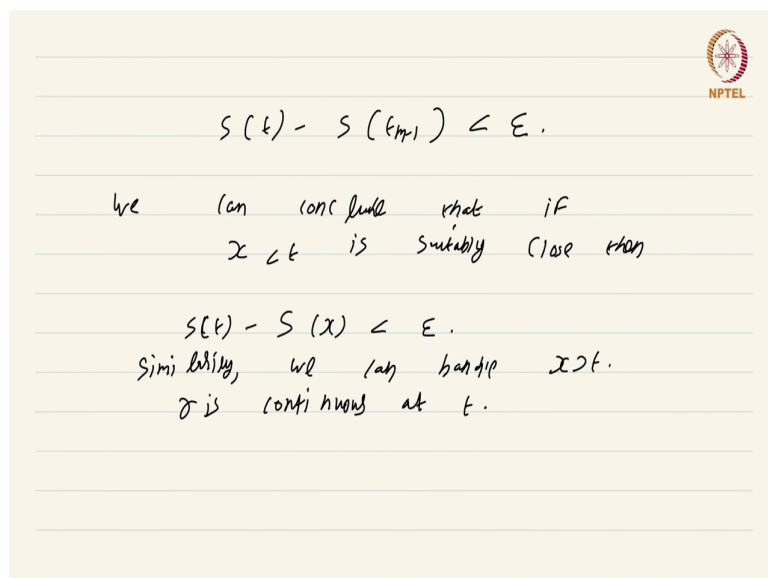 NPTEL
S(t) - S(tm-1) < ε.
We can conclude that if
x < t is suitably close then
S(t) - S(x) < ε.
Similarly, we can handle x > t.
γ is continuous at t.